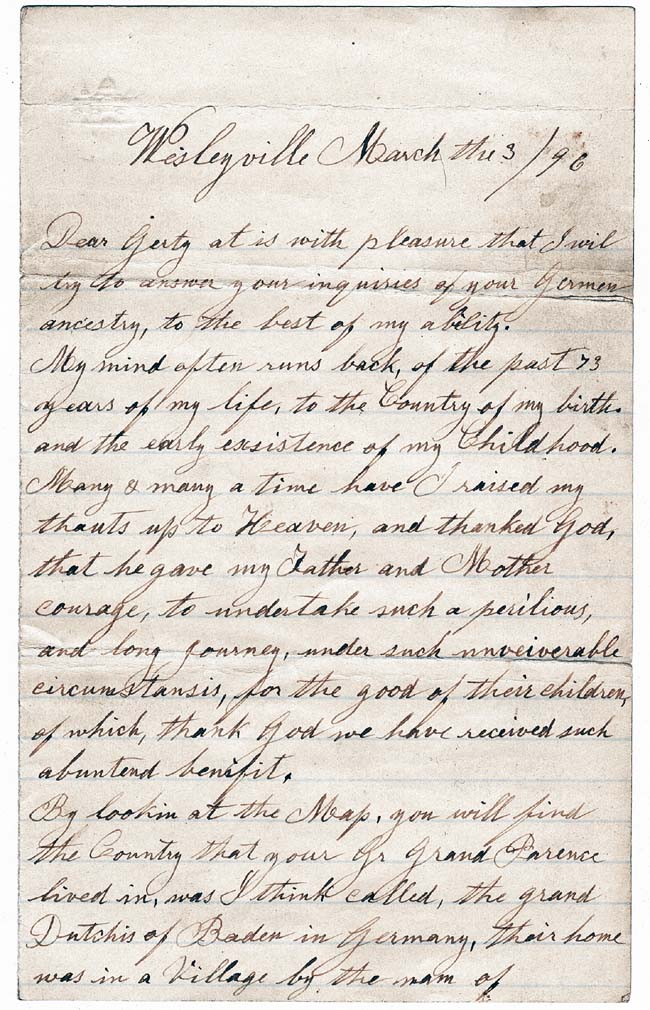 Wesleyville March the 3/96
Dear Gerty at is with pleasure that I wil
try to answer your inquiries of your Germen
ancestry, to the best of my ability.
My mind often runs back, of the past 73
years of my life, to the Country of my birth.
and the early exsistence of my Childhood.
Many & many a time have I raised my
thauts up to Heaven, and thanked God,
that he gave my Father and Mother
courage, to undertake such a perilious,
and long journey, under such unveiverable
circumstansis, for the good of their children,
of which, thank God we have received such
abuntend benifit.
By lookin at the Map, you will find
the Country that your Gr Grand Parence
lived in, was I think called, the grand
Dutchis of Baden in Germany, their home
was in a Village by the nam of